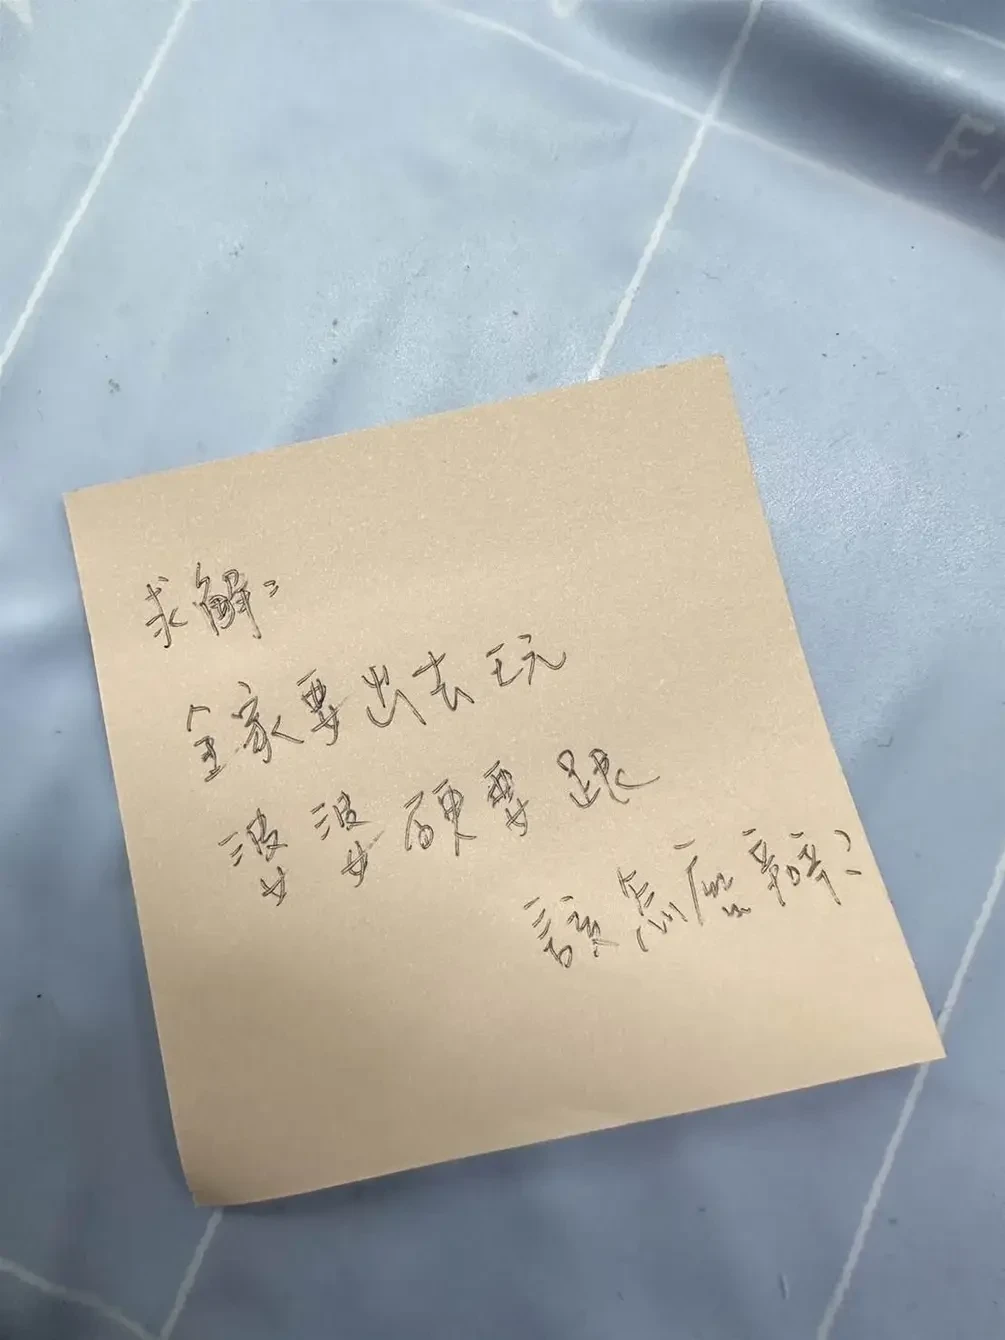 求解:
全家要出去玩
婆婆硬要跟
該怎麼辦?